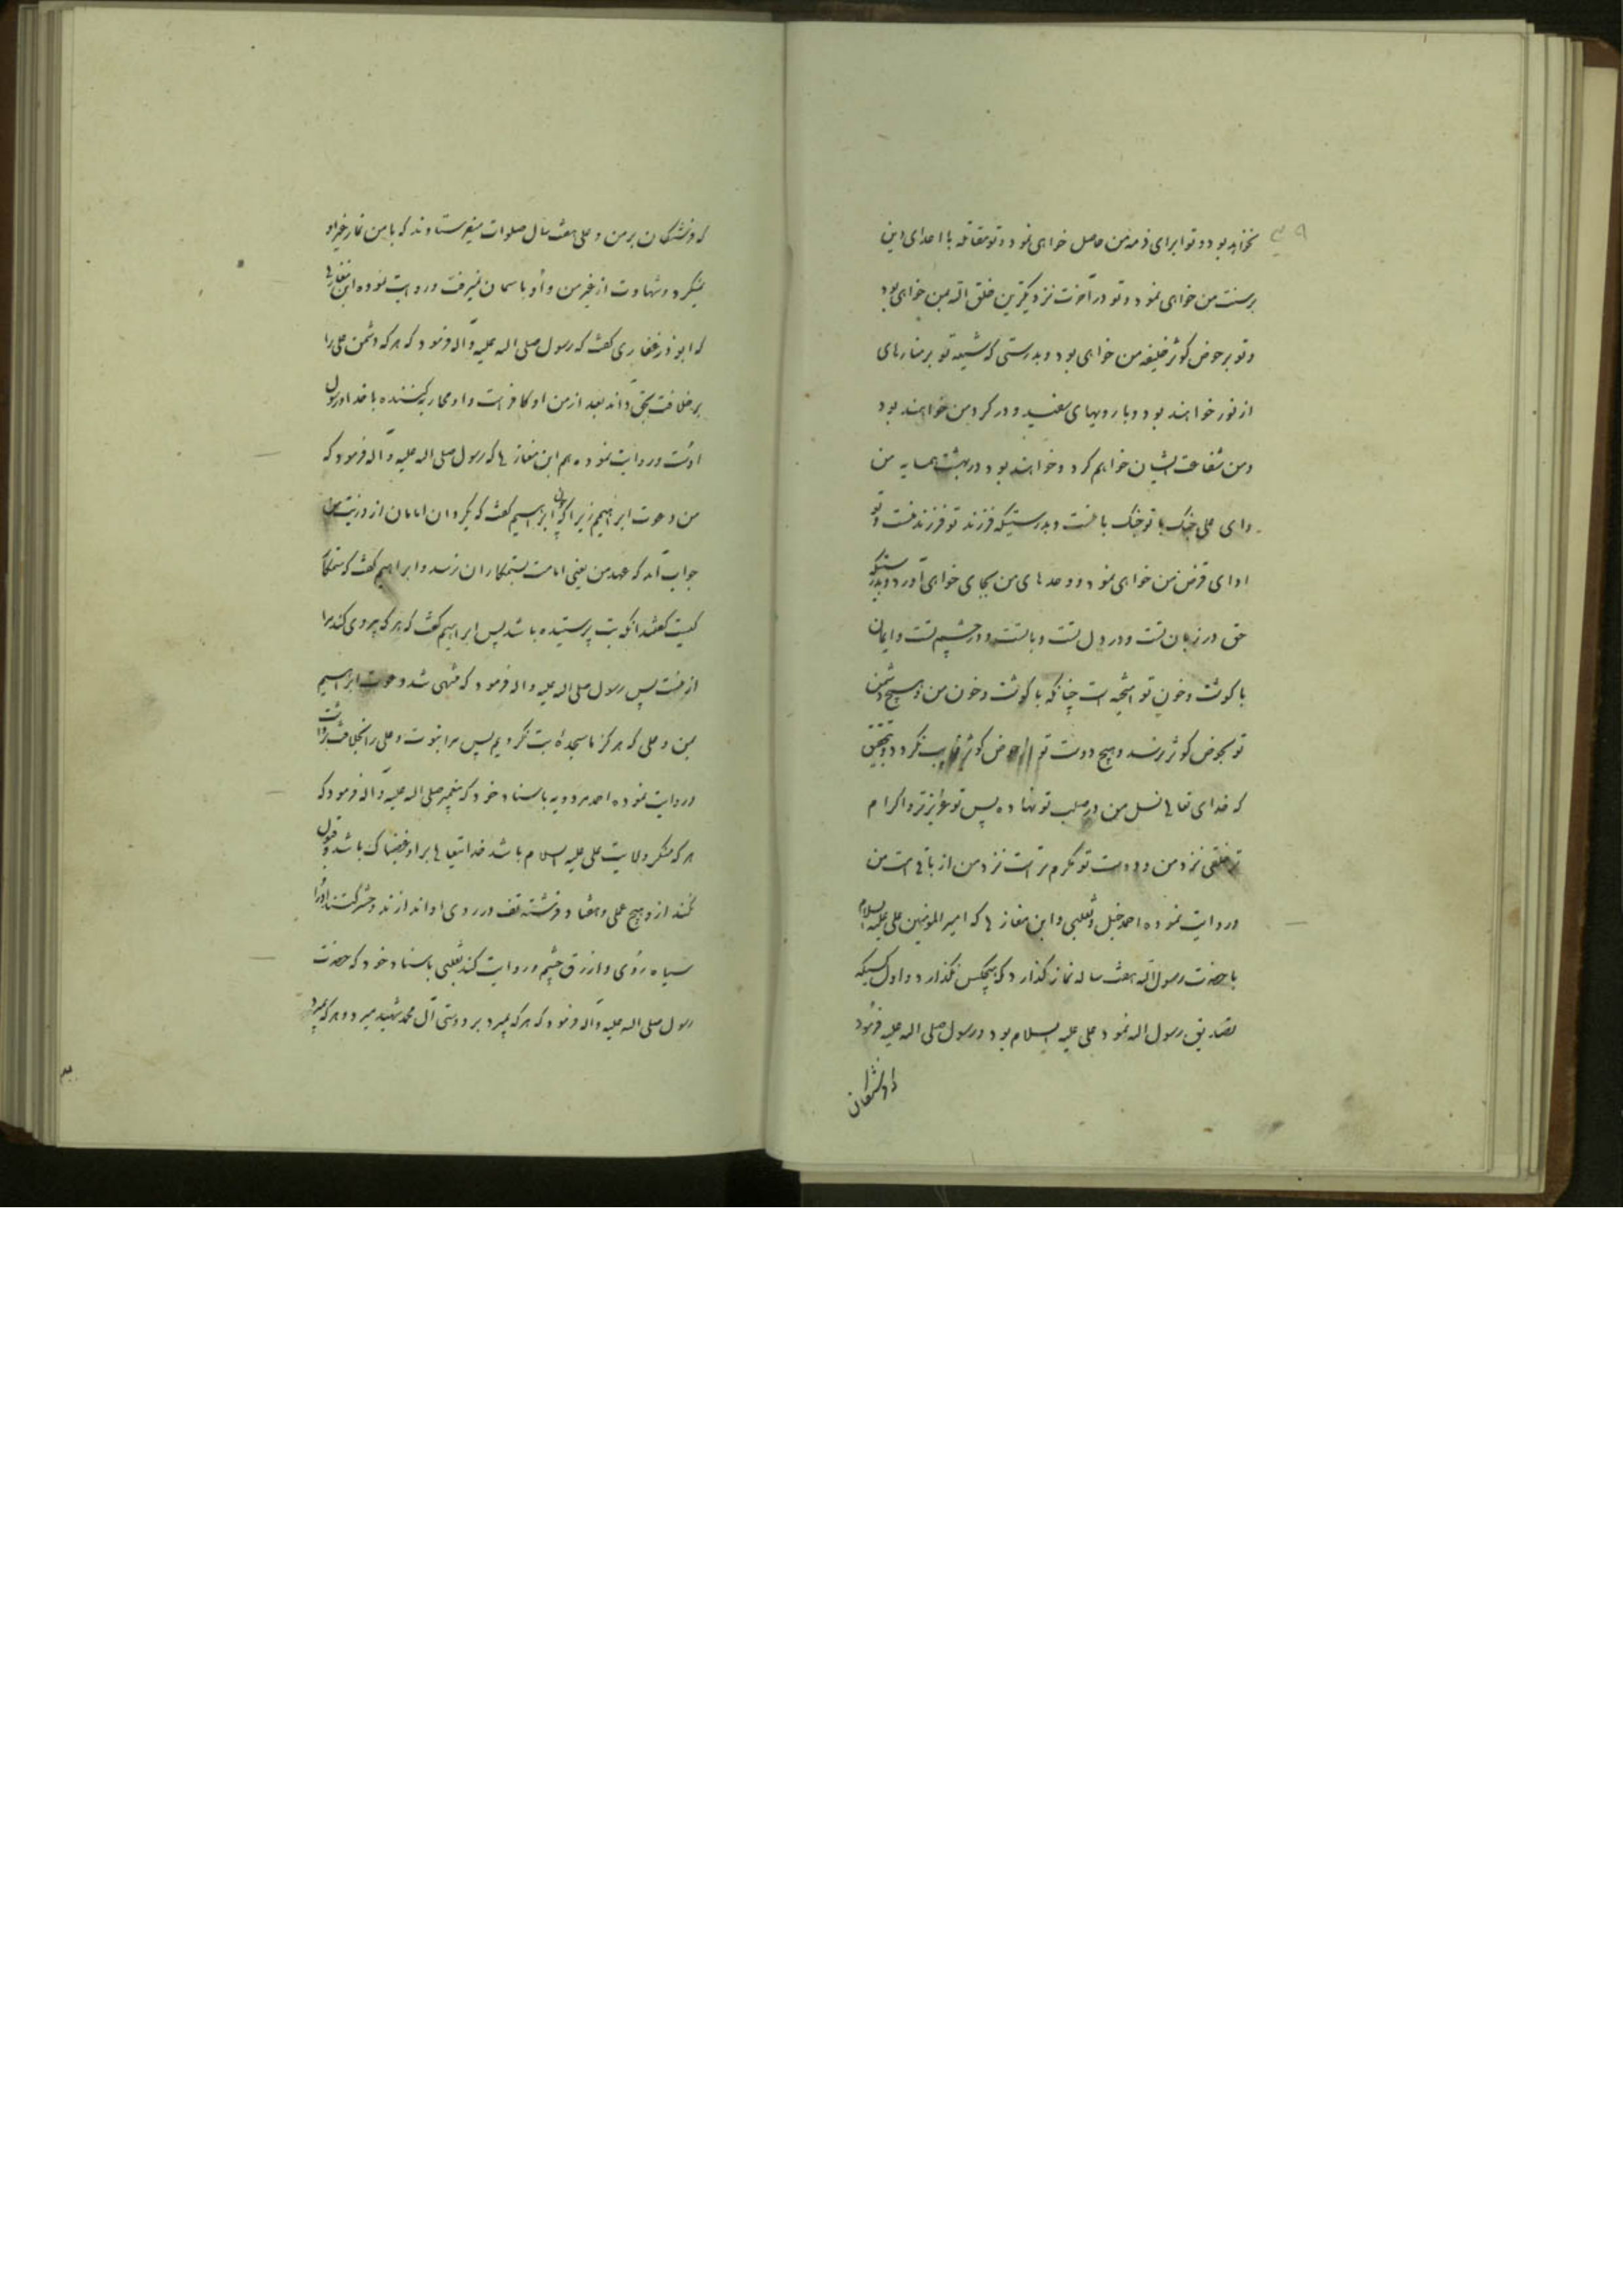 نخواهد بود و تو ابرای ذمه من حاصل خواهی نمود و تو مقاتله با اعدای دین
بر سنت من خواهی نمود و تو در آخرت نزدیکترین خلق اله بمن خواهی بود
و تو بر حوض کوثر خلیفه من خواهی بود و بدرستی که شیعه تو بر منارهای
از نور خواهند بود و با رویهای سفید و در گرد من خواهند بود
و من شفاعت ایشان خواهم کرد و خواهند بود در بهشت همسایه من
و ای علی جنگ با تو جنگ با منست و بدرستیکه فرزند تو فرزند منست و تو
ادای قرض من خواهی نمود و وعدهای من بجای خواهی آورد و بدرستیکه
حق در زبان تست و در دل تست و با تست و در چشم تست و ایمان
با گوشت و خون تو آمیخته است چنانکه با گوشت و خون من و هیچ دشمن
تو بحوض کوثر نرسد و هیچ دوست تو از حوض کوثر غایب نگردد و بتحقیق
که خدای تعالی نسل من در صلب تو نهاده پس تو عزیزتر و اکرام
تر خلقی نزد من و دوست تو مکرم تر است نزد من از باقی امت من
و روایت نموده احمد حنبل و ثعلبی و ابن مغازلی که امیر المومنین علی علیه السلام
با حضرت رسول اله هفت ساله نماز گذارد که هیچکس نگذارد و اول کسیکه
تصدیق رسول اله نمود علی علیه السلام بود و رسول صلی اله علیه فرمود
که فرشتگان بر من و علی هفت سال صلوات میفرستادند که با من نماز غیر او
نمیکرد و شهادت از غیر من و او باسمان نمیرفت و روایت نموده ابن مغازلی
که ابوذر غفاری گفت که رسول صلی اله علیه و آله فرمود که هر که دشمن علی را
بر خلافت بحق داند بعد از من او کافر است و او محاربه کننده با خدا و رسول
اوست و روایت نموده هم ابن مغازلی که رسول صلی اله علیه و آله فرمود که
من دعوت ابراهیم زیرا که چون ابراهیم گفت که بگردان امامان از ذریت من
جواب آمد که عهد من یعنی امامت بستمکاران نرسد و ابراهیم گفت که ستمکار
کیست گفتند انکه بت پرستیده باشد پس ابراهیم گفت که هر که پیروی کند مرا
از منست پس رسول صلی اله علیه و اله فرمود که منتهی شد دعوت ابراهیم
بمن و علی که هرگز ما سجده بت نکردیم پس مرا بنبوت و علی را بخلافت
و روایت نموده احمد مردویه باسناد خود که پیغمبر صلی اله علیه و آله فرمود که
هر که منکر ولایت علی علیه السلام باشد خدایتعالی بر او غضبناک باشد و قبول
نکند ازو هیچ عملی و هفتاد فرشته تف در روی او اندازند و حشر کنند او را
سیاه روی و ازرق چشم و روایت کند ثعلبی باسناد خود که حضرت
رسول صلی اله علیه و آله فرمود که هر که بمیرد بر دوستی آل محمد شهید میرد و هر که بمیرد